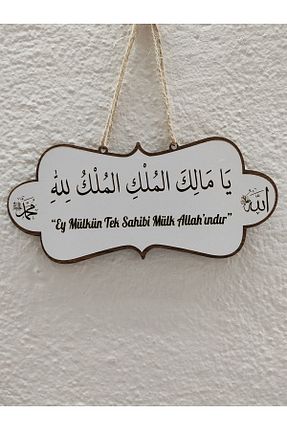 يَا مَالِكَ المُلْكِ المُلْكُ لِلهِ
“Ey Mülkün Tek Sahibi Mülk Allah'ındır”
الله
محمد